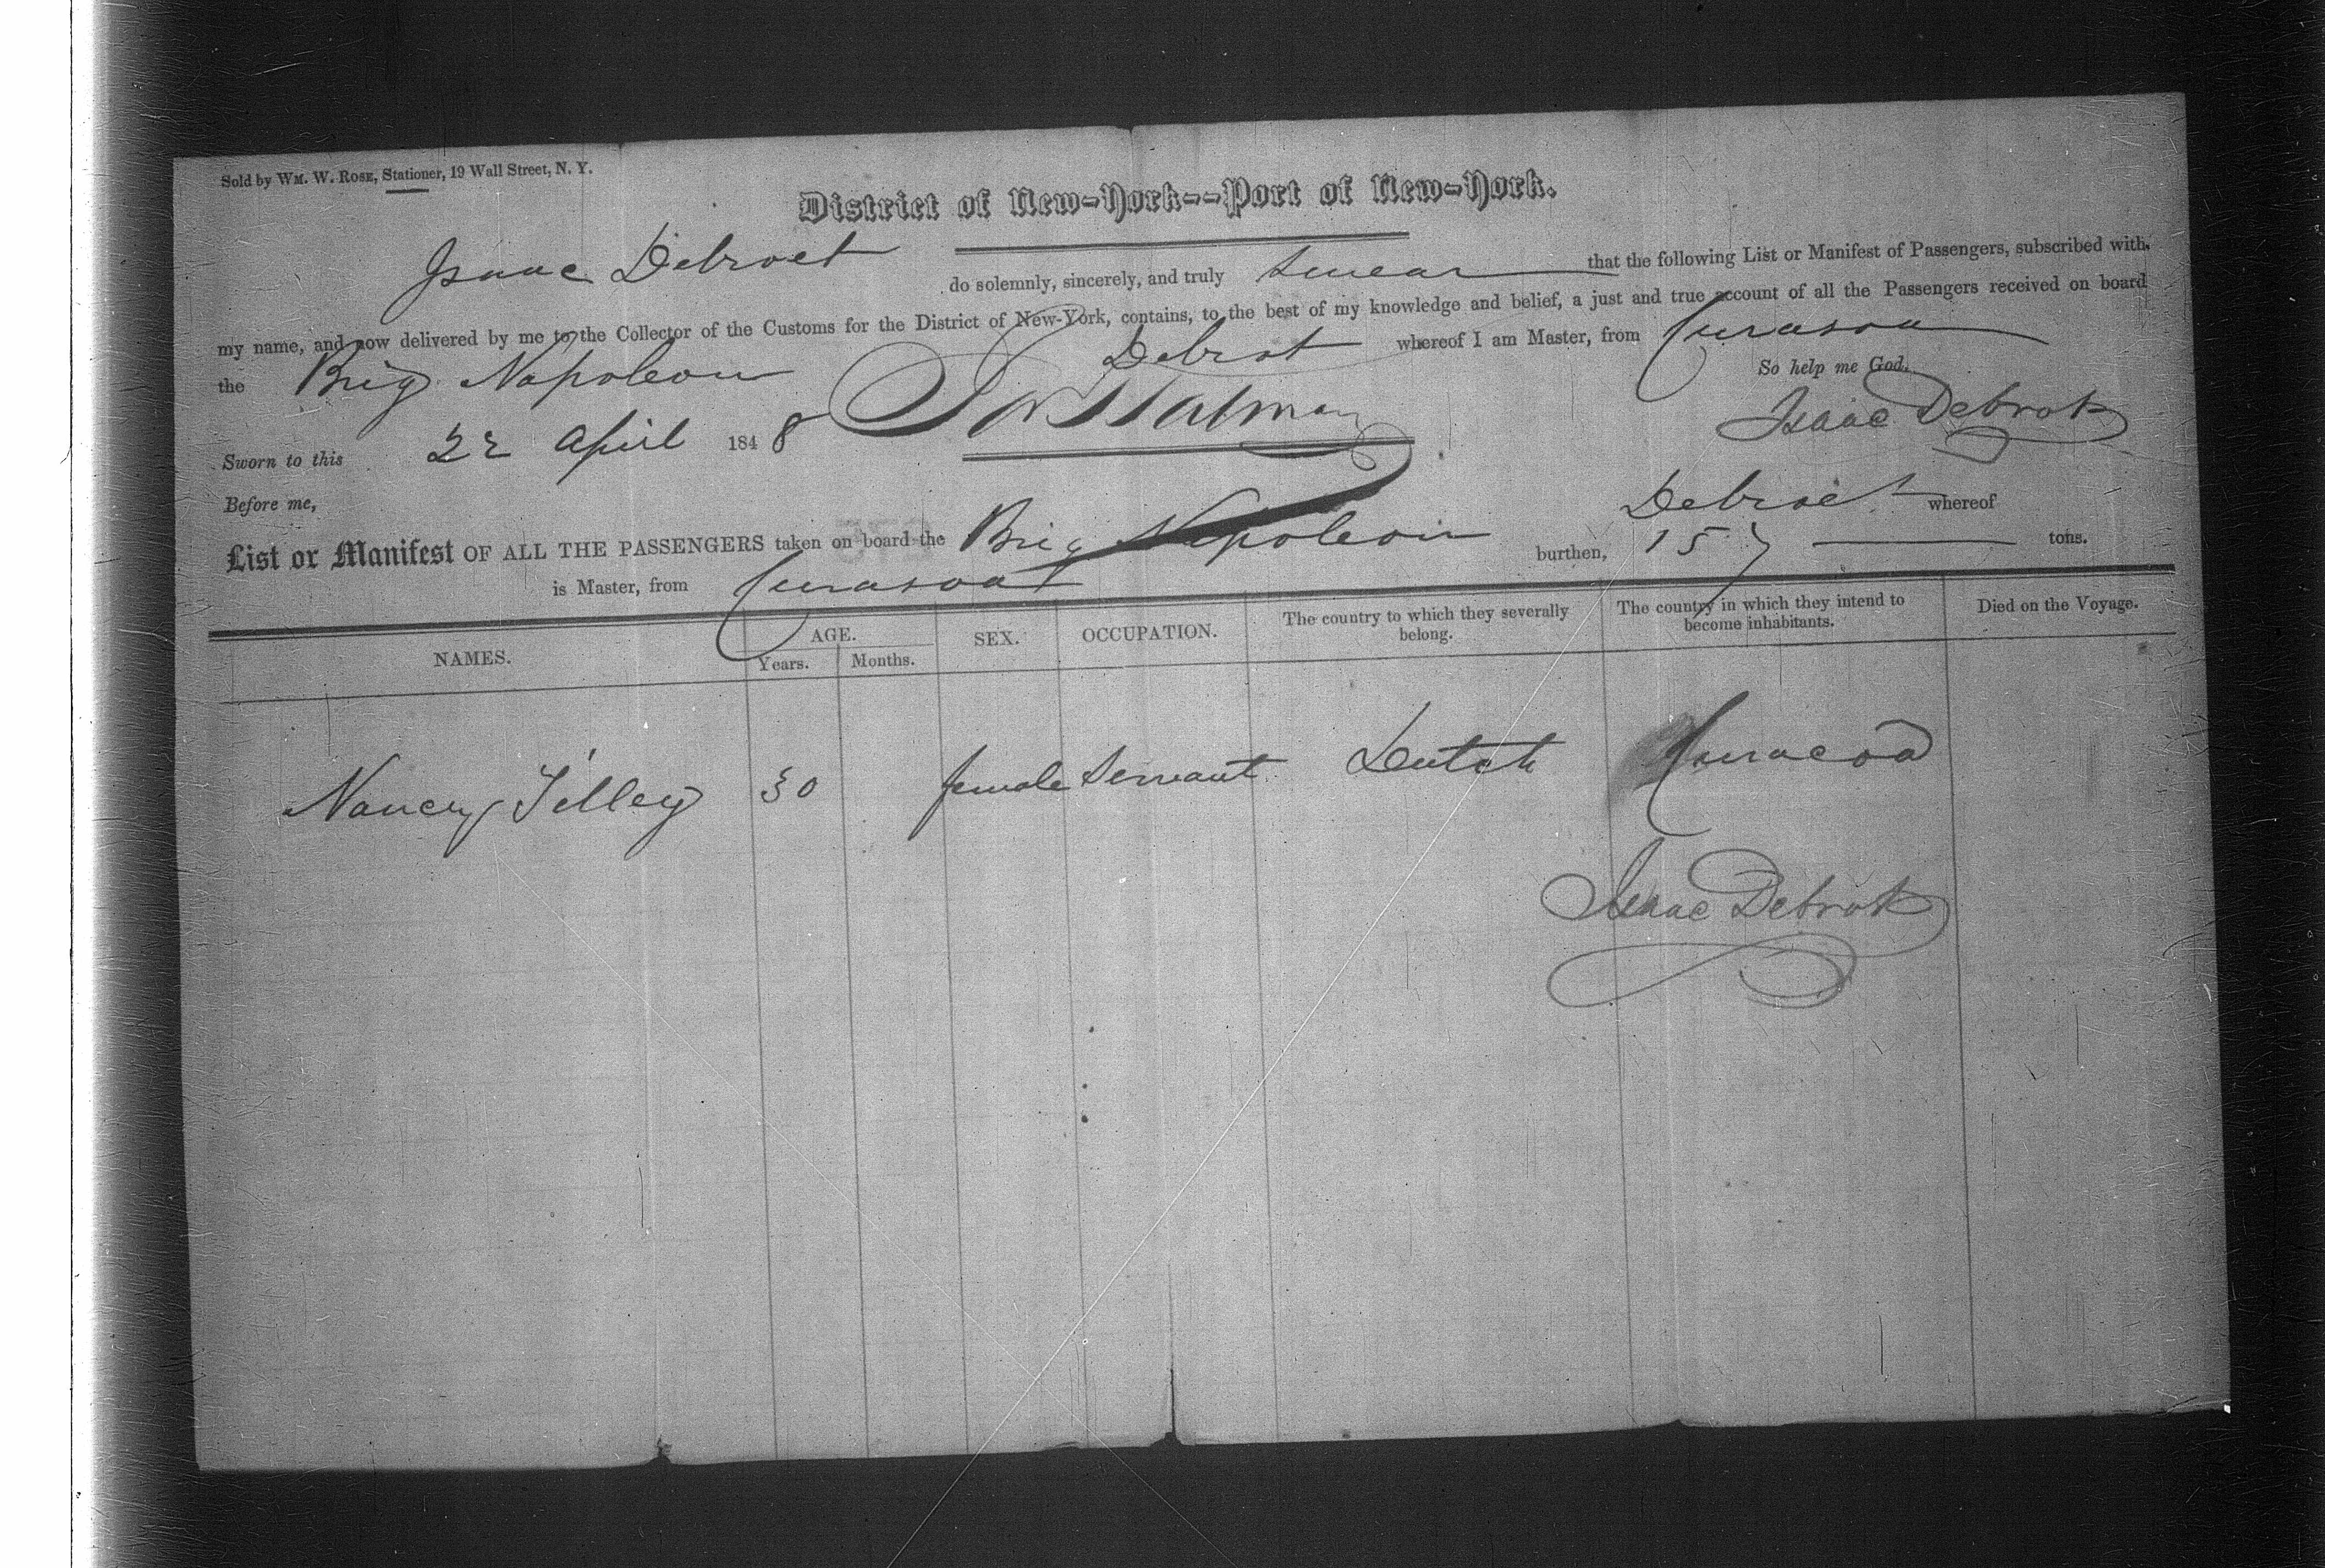 Sold by WM. W. ROSE, Stationer, 19 Wall Street, N. Y.
District of New-York--Port of New-York.
Isaac Debroet do solemnly, sincerely, and truly swear that the following List or Manifest of Passengers, subscribed with
my name, and now delivered by me to the Collector of the Customs for the District of New-York, contains, to the best of my knowledge and belief, a just and true account of all the Passengers received on board
the Brig Napoleon Debrot whereof I am Master, from Curasoa
So help me God.
Sworn to this 22 April 1848 Isaac Debrot
Before me,
List or Manifest OF ALL THE PASSENGERS taken on board the Brig Napoleon Debroet whereof
is Master, from Curasoa burthen, 157 tons.
NAMES. AGE. SEX. OCCUPATION. The country to which they severally belong. The country in which they intend to become inhabitants. Died on the Voyage.
Years. Months.
Nancy Tilley 30 female Servant Dutch Curacoa
Isaac Debrot